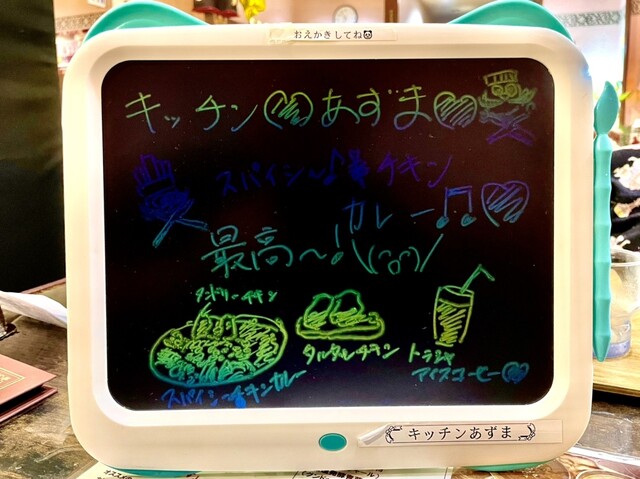 おえかきしてね🐼
キッチン♡あずま♡
スパイシ〜♪チキン
カレー♫♡
最高〜!\(^o^)/
タンドリーチキン
タルタルチキン
トラジャ
アイスコーヒー♡
スパイシ〜チキンカレー
キッチンあずま